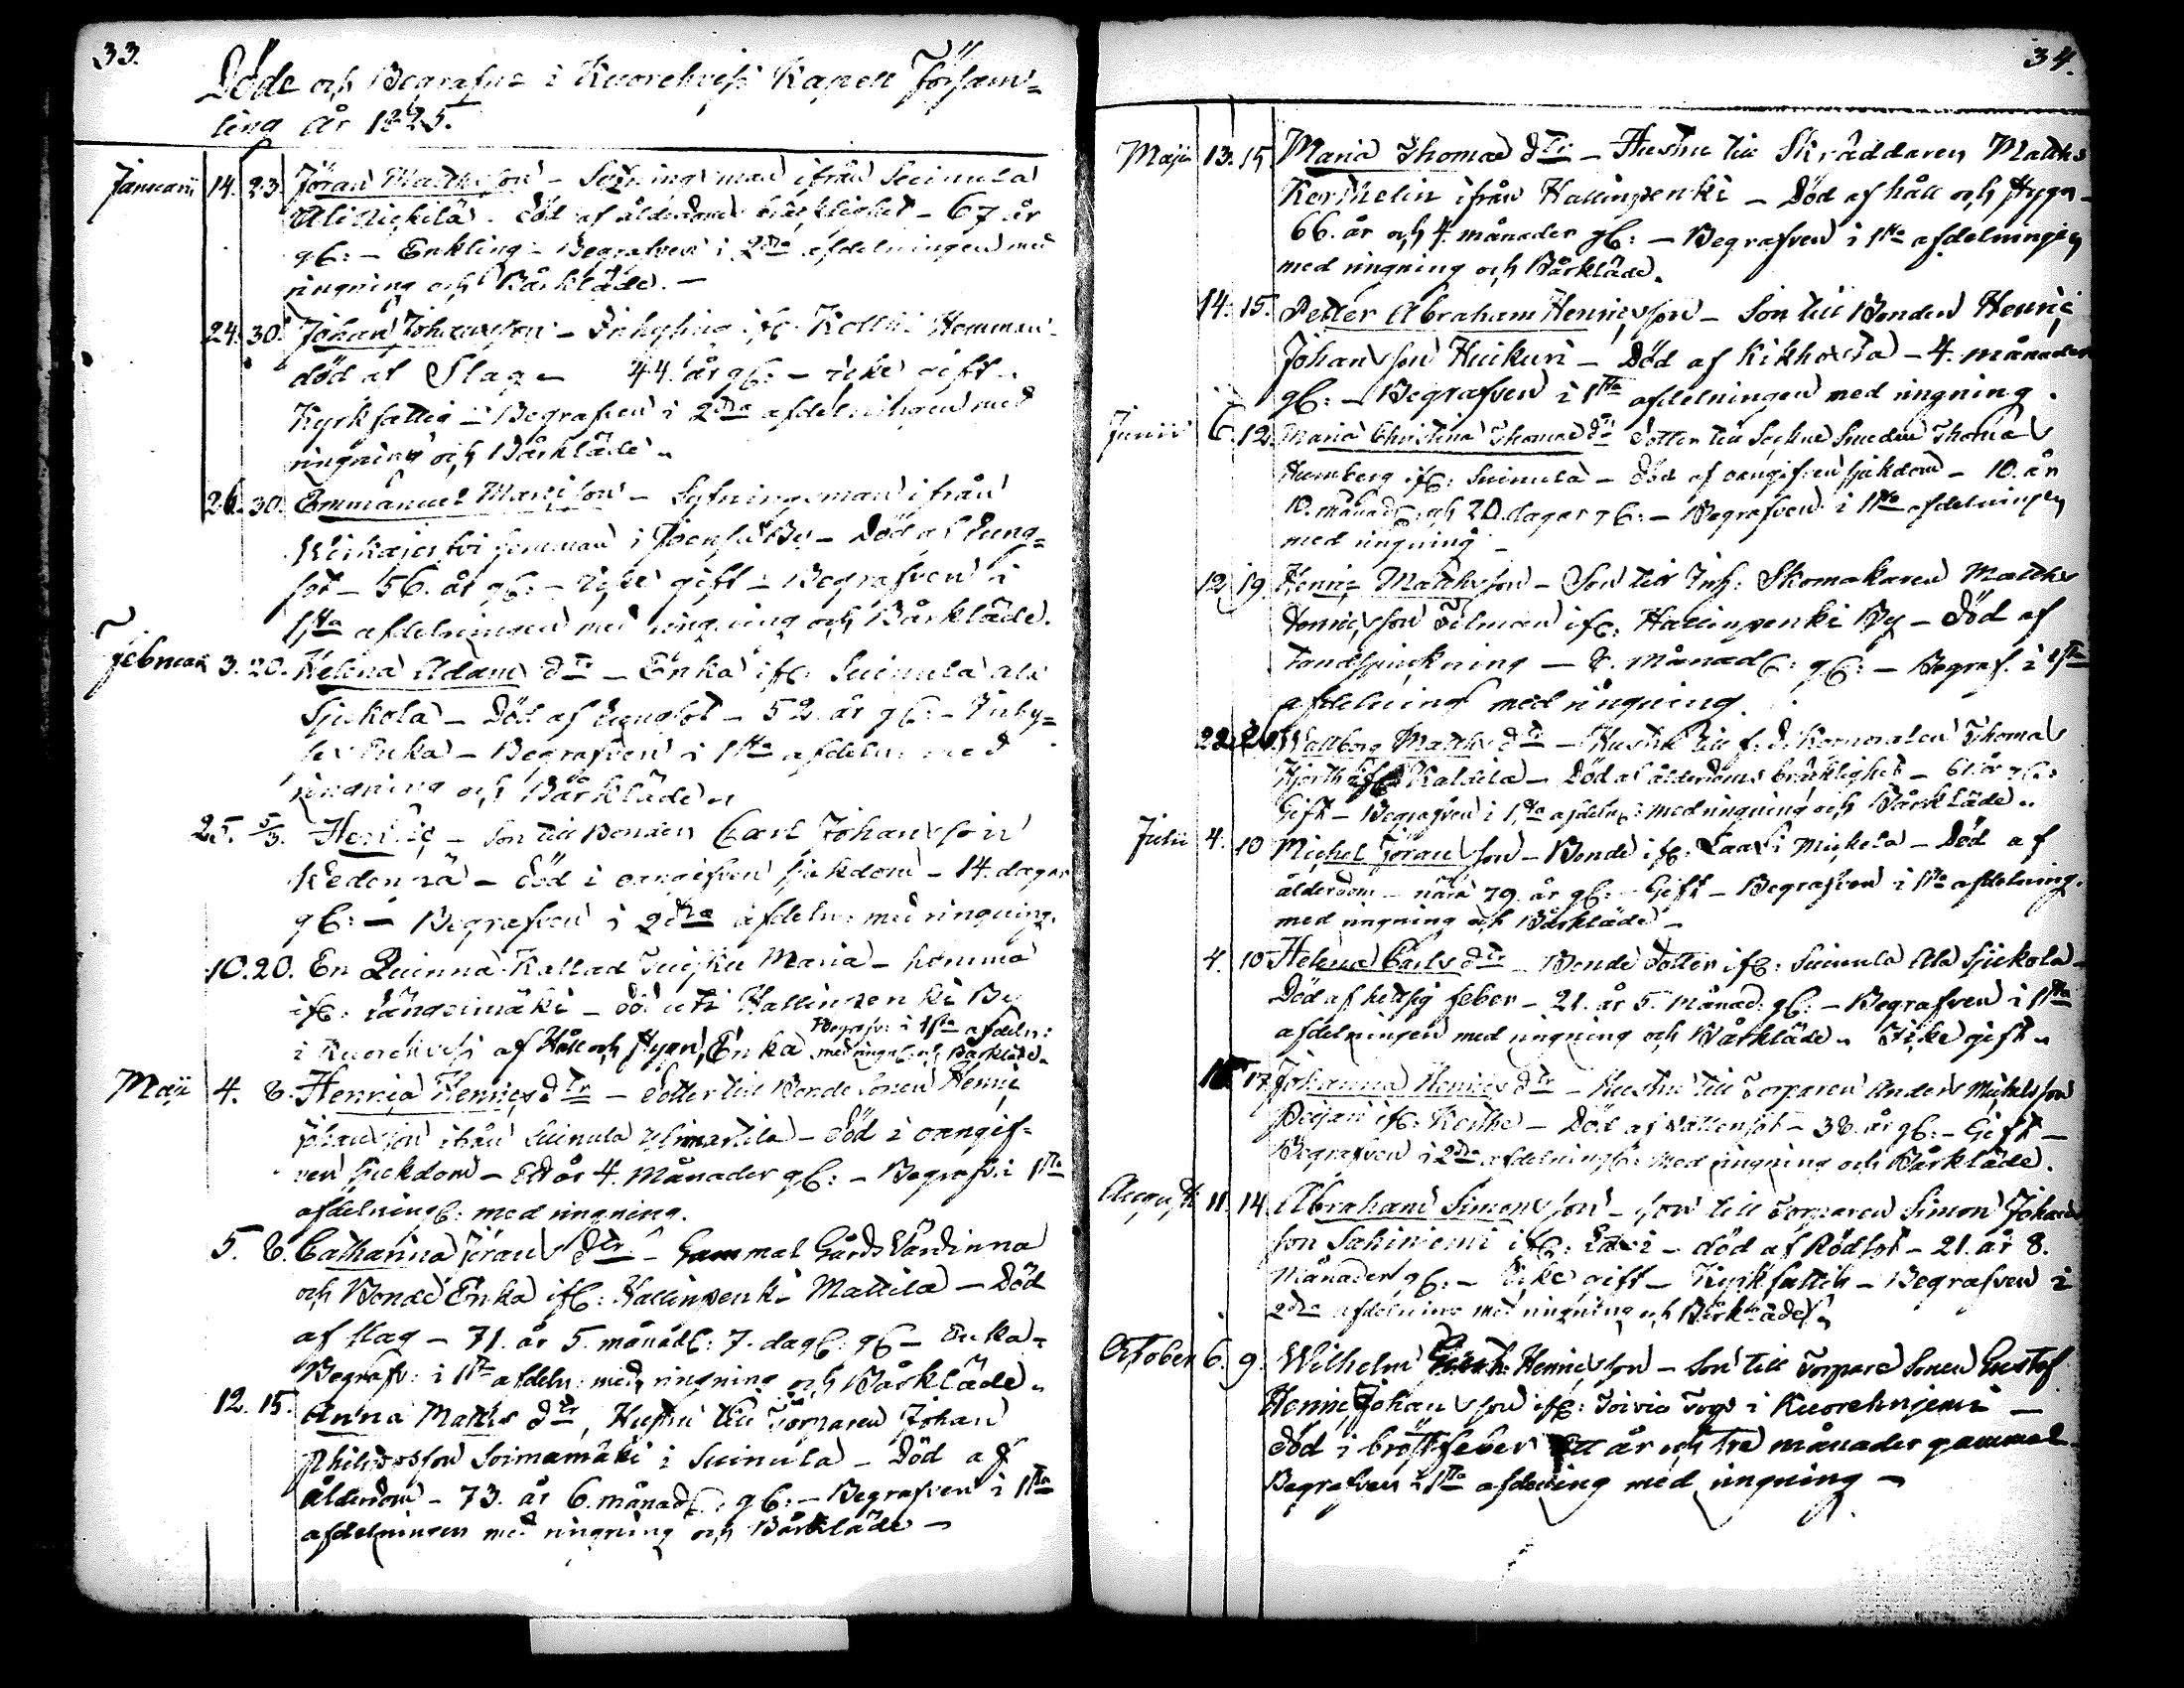 33.
Döde och Begrafne i Kuorehvesi Kapell Försam=
ling År 1825.
Januarii 14. 23. Jöran Matthsson - Sytningsman ifrån Suinula
Ali död af ålderdoms bräcklighet - 67 år
gl: - Enkling - Begrafven i 2dra afdelningen med
ringning och Bårkläde. -
24. 30. Johan Johansson - Inhysing ifr: Hemman
död af Slag - 44 år gl: - icke gift -
Kyrkfattig - Begrafven i 2dra afdelningen med
ringning och Bårkläde.
26. 30. Emmanuel - Sytningsman ifrån
hemman i By - Död af Lung=
sot - 56. år gl: - icke gift - Begrafven i
1sta afdelningen med ringning och Bårkläde.
Februarii 3. 20. Helena Adams dtr - Enka ifr: Suinula Ala
Sjukola - Död af Lungsot - 52. år gl: - Inhy=
ses Enka - Begrafven i 1sta afdeln: med
ringning och Bårkläde.
25. 5/3. Henric - Son till Bonden Carl Johansson
- död i oangifven sjukdom - 14. dagar
gl: - Begrafven i 2dra afdeln: med ringning.
10. 20. En Quinna Kallad Maria - hemma
ifr: Längelmäki - död uti Hallinpenki By
Begrafv: i 1sta afdeln:
i Kuorehvesi af Håll och Stygn, Enka med ringn: och Bårkläde.
Maji 4. 8. Henrica Henrics dtr - dotter till Bonde Sonen Henric
Johansson ifrån Suinula - död i oangif=
ven sjukdom - Ett år 4. Månader gl: - Begrafv: i 1sta
afdelning: med ringning.
5. 8. Catharina Jörans dtr - Gammal Gårds Värdinna
och Bonde Enka ifr: Hallinpenki Mattila - Död
af slag - 71. år 5. månad: 7. dag: gl - Enka -
Begrafv: i 1sta afdeln: med ringning och Bårkläde.
12. 15. Anna Matths dtr, Hustru till Torparen Johan
Philipsson Soimamäki i Suinula - Död af
Ålderdom - 73. år 6. månad: gl: - Begrafven i 1sta
afdelningen med ringning och Bårkläde -
34.
Maji 13. 15. Maria Thomas dtr - Hustru till Skräddaren Matths
Kerthelin ifrån Hallinpenki - Död af håll och stygn -
66. år och 4. månader gl: - Begrafven i 1sta afdelningen
med ringning och Bårkläde.
14. 15. Petter Abraham Henricsson - Son till Bonden Henric
Johansson Huikuri - Död af Kikhosta - 4. månader
gl: - Begrafven i 1sta afdelningen med ringning.
Junii 6. 12. Maria Christina Thomas dtr dotter till Sockne Smeden Thomas
Humberg ifr: Suinula - död af oangifven sjukdom - 10. år
10. månad: och 20. dagar gl: - Begrafven i 1sta afdelningen
med ringning -
12. 19. Henric Matthsson - Son till Inh: Skomakaren Matths
Henricsson Tilman ifr: Hallinpenki By - död af
Tandsprickning - 8. Månad: gl: - Begraf. i 1sta
afdelning med ringning.
22. 26. Wallborg Matths dtr - Hustru till f. d. Korporalen Thomas
Hjorth ifr: Kaldila - Död af ålderdoms bräcklighet - 61. år gl:
Gift - Begrafven i 1sta afdeln: med ringning och Bårkläde.
Julii 4. 10 Michel Jöransson - Bonde ifr: Laasi Mickola - Död af
ålderdom - nära 79. år gl: - Gift - Begrafven i 1sta afdelning.
med ringning och Bårkläde -
4. 10. Helena Carls dtr - Bonde dotter ifr: Suinula Ala Sjukola -
Död af hetsig feber - 21. år 5. Månad: gl: - Begrafven i 1sta
afdelningen med ringning och Bårkläde. Icke gift.
17. Johanna Henrics dtr - Hustru till Torparen Anders Michelsson
ifr: - Död af Vattensot - 38. år gl: - Gift -
Begrafven i 2dra afdelning: med ringning och Bårkläde.
Augusti 11. 14. Abraham Simonsson - Son till Torparen Simon Johans
son Sahiniemi ifr: - död af Rödsot - 21. år 8.
Månader gl: - Icke gift - Kyrkfattig - Begrafven i
2dra afdelning med ringning och Bårkläde.
October 6. 9. Wilhelm Henricsson - Son till Torpare Sonen Gustaf
Henric Johansson ifr: Toivio Torp i Kuorehniemi -
död i bröstfeber Ett år och tre månader gammal -
Begrafven i 1sta afdelning med ringning -